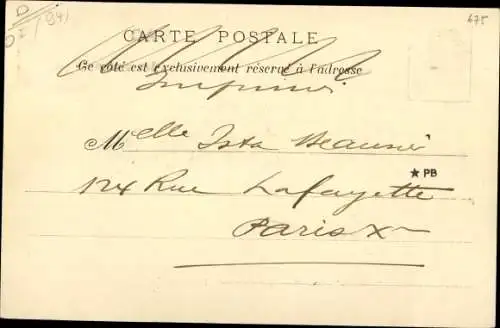 D
OZ/941
675
CARTE POSTALE
Ce côté est exclusivement réservé à l'adresse
Imprimé
Melle Ista Beausir
★ PB
124 Rue Lafayette
Paris X